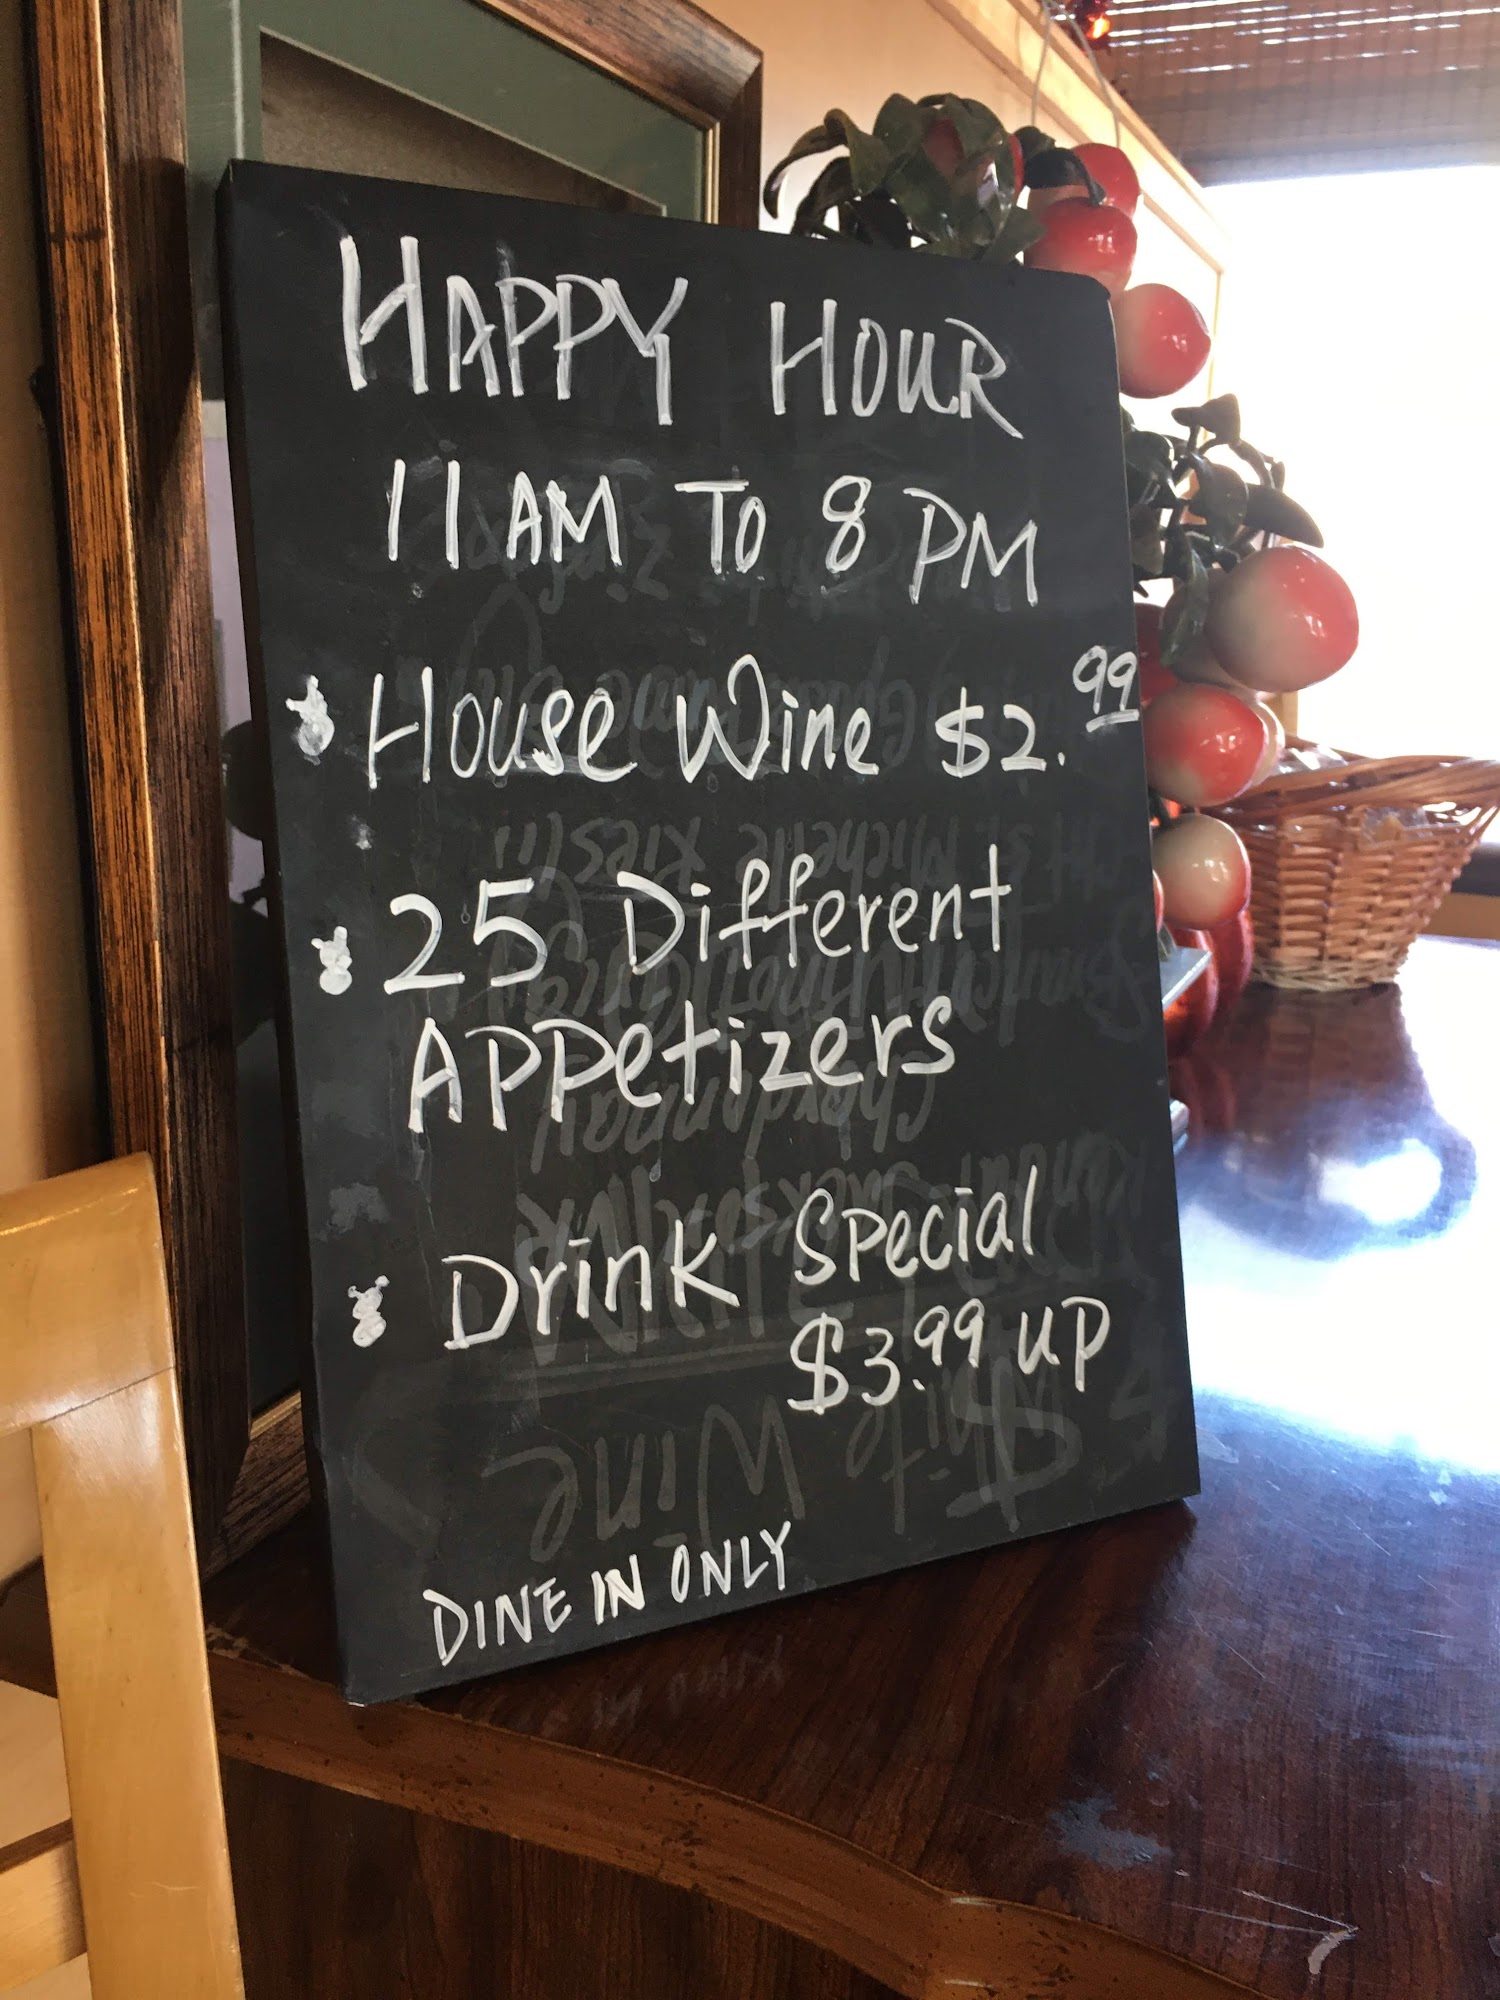 HAPPY HOUR
11 AM TO 8 PM
House Wine $2.99
25 Different
Appetizers
Drink Special
$3.99 UP
DINE IN ONLY
Chardonnay
Wine